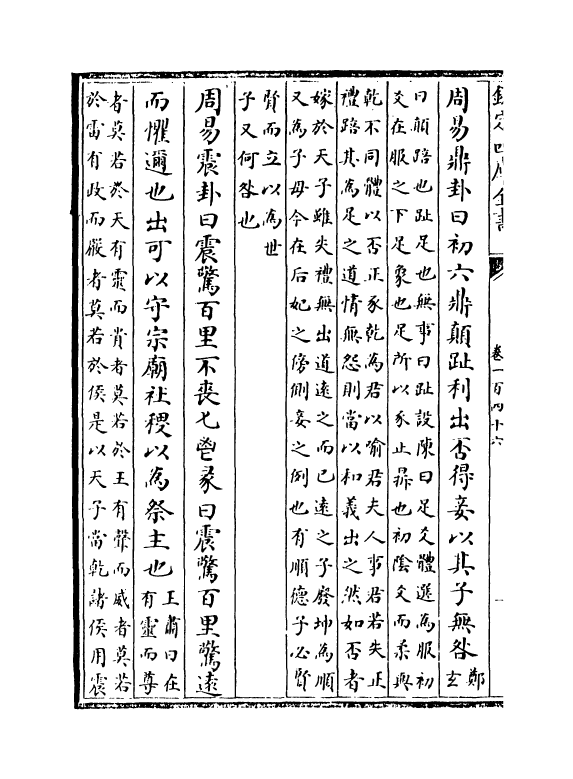 欽定四庫全書
卷一百四十六
周易鼎卦曰初六鼎顛趾利出否得妾以其子無咎鄭
玄
曰顛踣也趾足也無事曰趾設陳曰足爻體選為服初
爻在服之下足象也足所以承止鼎也初陰爻而柔與
乾不同體以否正承乾為君以喻君夫人事君若失正
禮踣其為足之道情無怨則當以和義出之然如否者
嫁於天子雖失禮無出道遠之而已遠之子廢坤為順
又為子母今在后妃之傍側妾之例也有順德子必賢
賢而立以為世
子又何咎也
周易震卦曰震驚百里不喪匕鬯彖曰震驚百里驚遠
而懼邇也出可以守宗廟社稷以為祭主也王肅曰在
有靈而尊
者莫若於天有靈而貴者莫若於王有聲而威者莫若
於雷有政而嚴者莫若於侯是以天子當乾諸侯用震